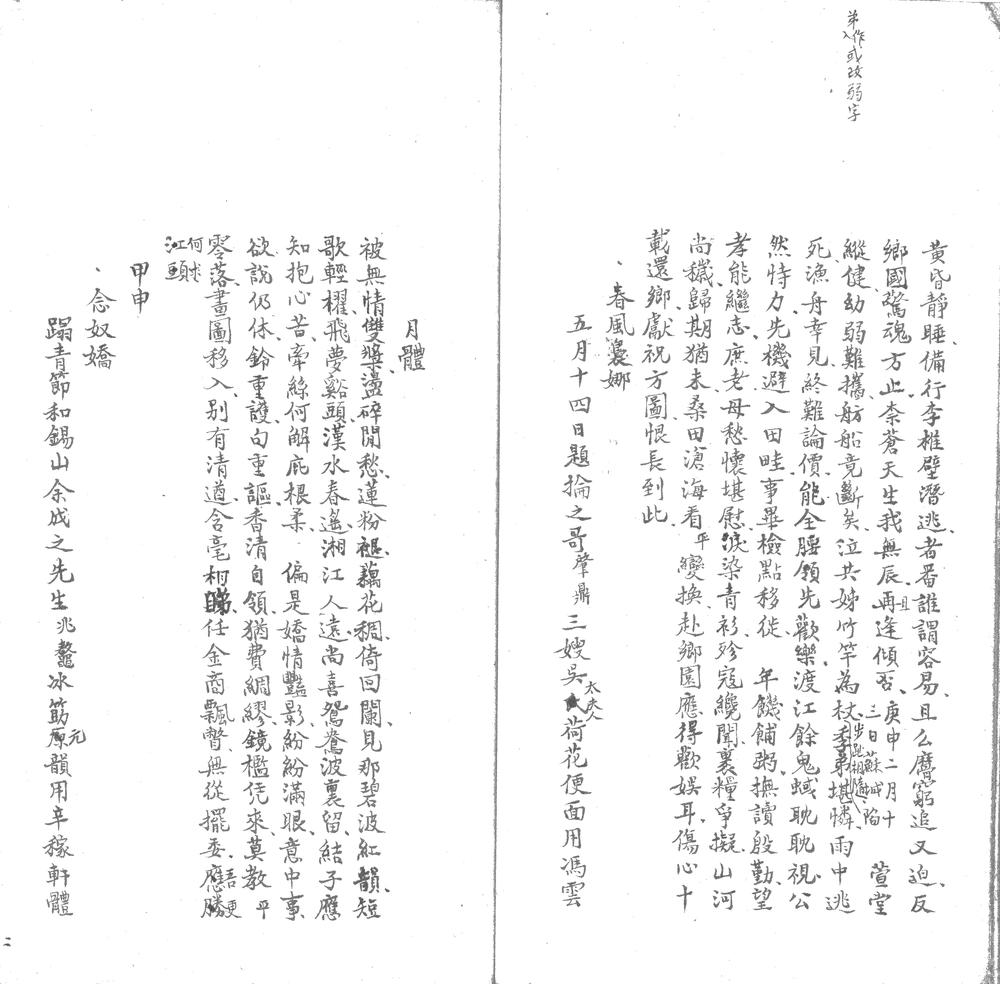 弟入作或改弱字
黃昏靜睡備行李椎壁潛逃者番誰謂容易且么麿窮追又迫反
鄉國驚魂方止柰蒼天生我無辰再逢傾否庚申二月十三日蘇城陷萱堂
縱健幼弱難攜舫船竟斷矣泣共娣竹竿為杖季弟堪憐雨中逃
死漁舟幸見終難論價能全腰領先歡樂渡江餘鬼蜮眈眈視公
然恃力先機避入田畦事畢檢點移徙 年饑餔粥撫讀殷勤望
孝能繼志庶老母愁懷堪慰淚染青衫殄寇纔聞裹糧爭擬山河
尚穢歸期猶未桑田滄海看平變換赴鄉園應得歡娛耳傷心十
載還鄉獻祝方圖恨長到此
春風裊娜
五月十四日題掄之哥肇鼎三嫂吳太夫人荷花便面用馮雲
月體
被無情雙槳盪碎閒愁蓮粉褪藕花稠倚回闌見那碧波紅韻短
歌輕櫂飛夢谿頭漢水春遙湘江人遠尚喜鴛鴦波裏留結子應
知抱心苦牽絲何解庇根柔 偏是嬌情豔影紛紛滿眼意中事
欲說仍休鈴重護句重謳香清自領猶費綢繆鏡檻凭來莫教平
零落畫圖移入別有清遒含毫相睇任金商飄瞥無從擺委應勝
江頭
甲申
念奴嬌
蹋青節和錫山余成之先生兆鼇冰筯原韻用辛稼軒體
二